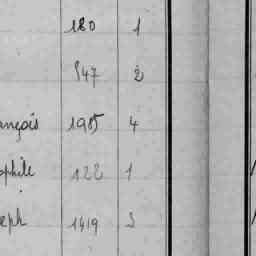 180 1
547 2
ançois 1985 4
ophile 122 1
seph 1419 3